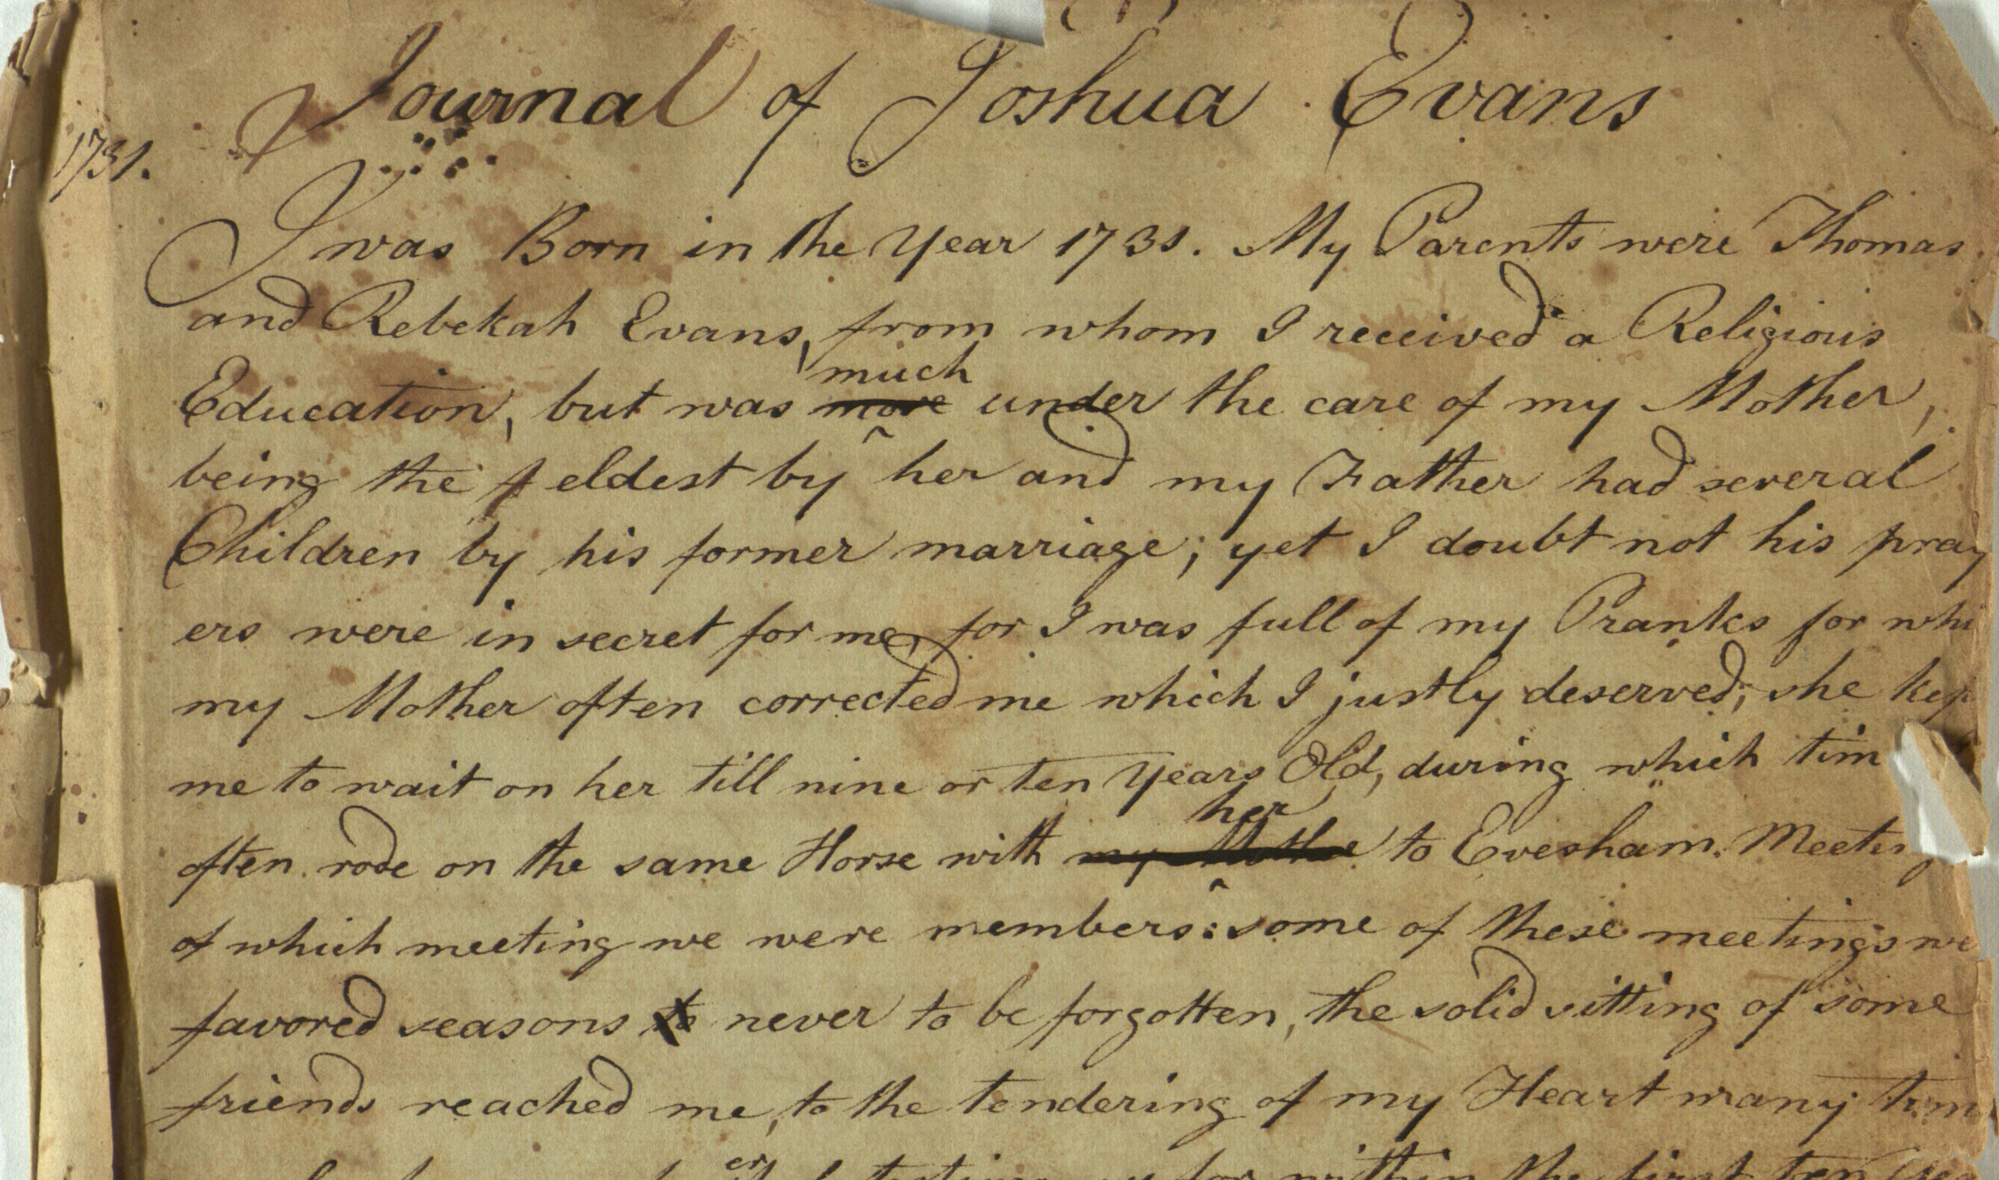 Journal of Joshua Evans
1731.
I was Born in the Year 1731. My Parents were Thomas
and Rebekah Evans, from whom I received a Religious
much
Education, but was more under the care of my Mother,
being the eldest by her and my Father had several
Children by his former marriage; yet I doubt not his pray
ers were in secret for me, for I was full of my Pranks for whi
my Mother often corrected me which I justly deserved; she kep
me to wait on her till nine or ten Years Old, during which tim
her
often rode on the same Horse with my Mother to Evesham Meeting
of which meeting we were members: some of these meetings we
favored seasons to never to be forgotten, the solid sitting of some
friends reached me, to the tendering of my Heart many tim
for within the first ten